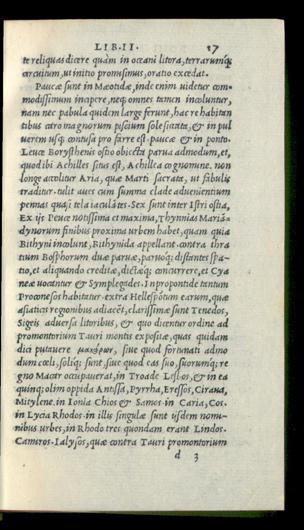 LIB. II. 57
te reliquas dicere quàm in oceani litora, terrarumq́;
circuitum, ut initio promisimus, oratio excedat.
Paucæ sunt in Mæotidæ, inde enim uidetur com-
modissimum incipere, neq; omnes tamen incoluntur,
nam nec pabula quidem large ferunt, hac re habitan
tibus caro magnorum piscium sole siccata, & in pul
uerem usq; contusa pro farre est. paucæ & in ponto.
Leuce Borysthenis ostio obiecta parua admodum, et,
quod ibi Achilles situs est, Achillea cognomine. non
longe a colitur Aria, quæ Marti sacrata, ut fabulis
traditur, tulit aues cum summa clade aduenientium
pennas quasi tela iaculātes. Sex sunt inter Istri ostia,
Ex ijs Peuce notissima et maxima, Thynnias Mariā-
dynorum finibus proxima urbem habet, quam quia
Bithyni incolunt, Bithynida appellant. contra thra
tium Bosphorum duæ paruæ, paruoq; distantes spa-
tio, et aliquando creditæ, dictæq; concurrere, et Cya
neæ uocantur & Symplegades. In propontide tantum
Proconesos habitatur. extra Hellespōtum earum, quæ
asiaticis regionibus adiacēt, clarissimæ sunt Tenedos,
Sigeis aduersa litoribus, & quo dicentur ordine ad
promontorium Tauri montis expositæ, quas quidam
dici putauere μακάρων, siue quod fortunati admo
dum cœli, soliq; sunt, siue quod eas suo, suorumq; re
gno Macar occupauerat, in Troade Lesbos, & in ea
quinq; olim oppida Antissa, Pyrrha, Eressos, Cirana,
Mitylene. in Ionia Chios & Samos. in Caria, Cos.
in Lycia Rhodos. in illis singulæ sunt ijsdem nomi-
nibus urbes, in Rhodo tres quondam erant Lindos.
Camiros. Ialysos, quæ contra Tauri promontorium
d 3